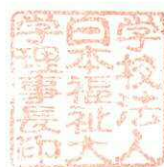 学校法人
日本福祉大
学理事長印